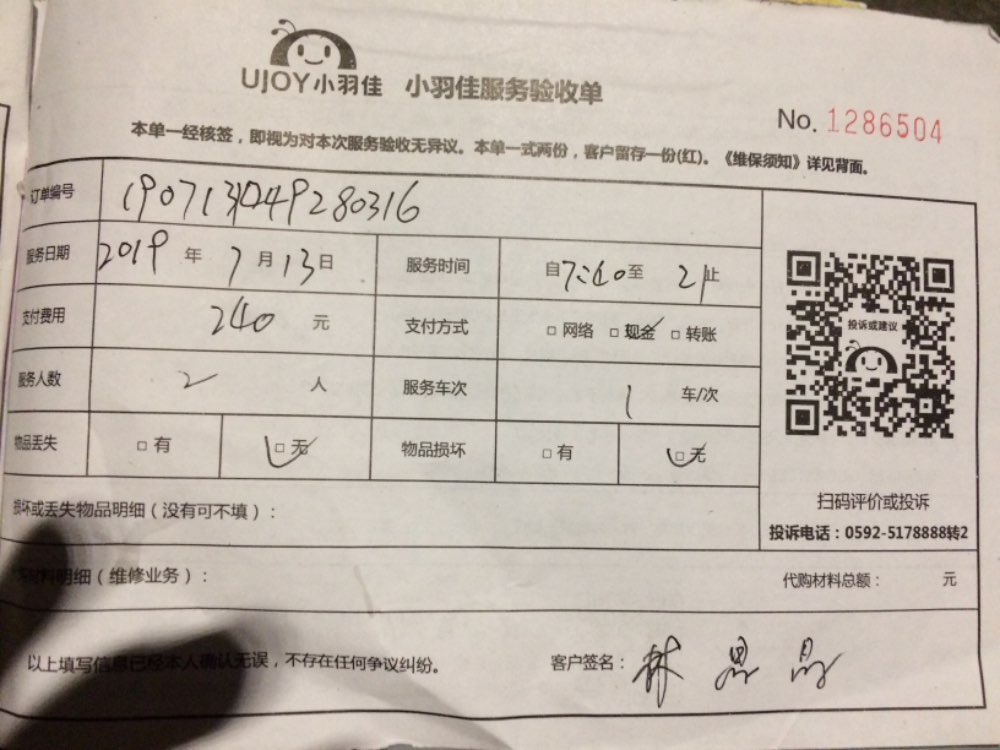 UJOY小羽佳 小羽佳服务验收单
No. 1286504
本单一经核签，即视为对本次服务验收无异议。本单一式两份，客户留存一份(红)。《维保须知》详见背面。
订单编号
服务日期 2019 年 7 月 13 日 服务时间 自 7:40 至 21 止
支付费用 240 元 支付方式 □ 网络 □ 现金 □ 转账
服务人数 2 人 服务车次 1 车/次
物品丢失 □ 有 □ 无 物品损坏 □ 有 □ 无
投诉或建议
扫码评价或投诉
投诉电话：0592-5178888转2
损坏或丢失物品明细（没有可不填）：
材料明细（维修业务）： 代购材料总额： 元
以上填写信息已经本人确认无误，不存在任何争议纠纷。 客户签名：林